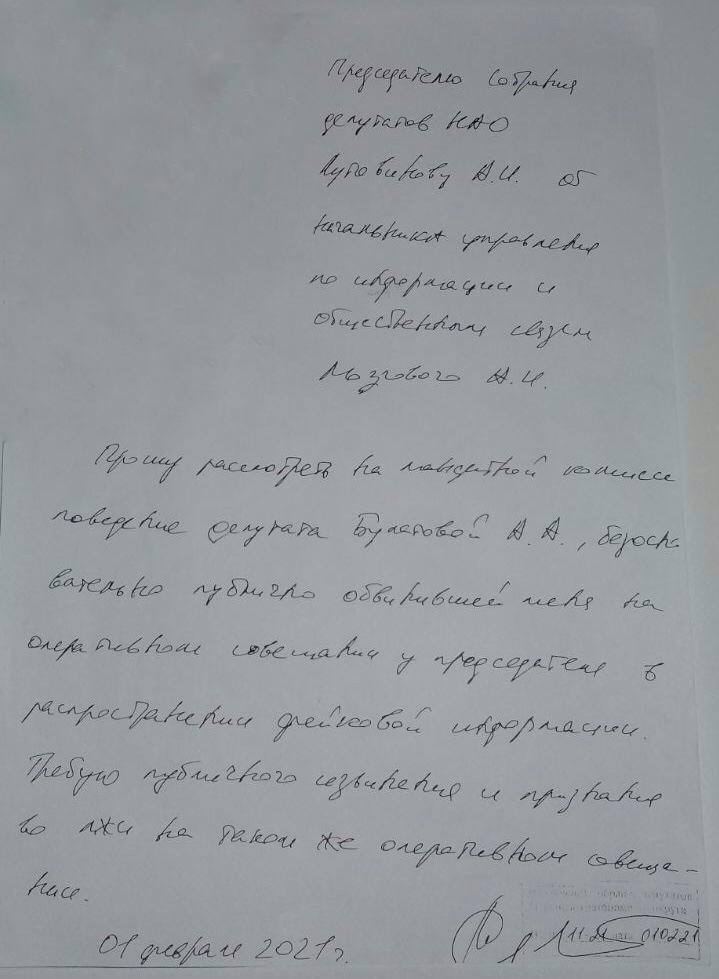 Председателю Собрания
депутатов НАО
Лутовинову А.И. от
начальника управления
по информации и
общественным связям
Мозгового А.И.
Прошу рассмотреть на мандатной комисси
поведение депутата Булатовой А.А., безосно
вательно публично обвинившей меня на
оперативном совещании у председателя в
распространении фейковой информации.
Требую публичного извинения и признания
во лжи на таком же оперативном совеща-
нии.
01 февраля 2021г.
11-21 010221